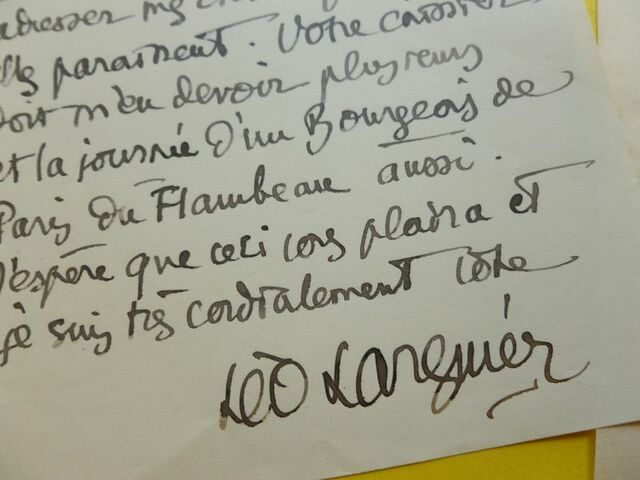 adresser mes
Elles paraissent. Votre caissier
doit m'en devoir plusieurs
et la journée d'un Bourgeois de
Paris du Flambeau aussi.
J'espère que ceci vous plaira et
je suis très cordialement vôtre
Léo Larguier